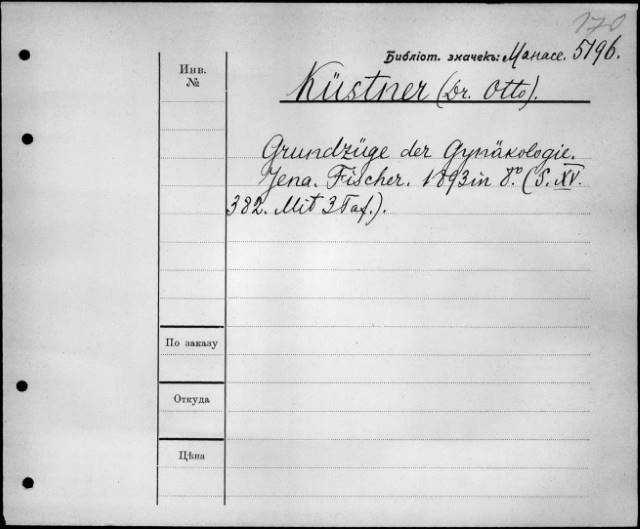 170
Библіот. значекъ: Манасс. 5196.
Инв.
№
Küstner (Dr. Otto).
Grundzüge der Gynäkologie.
Jena. Fischer. 1893 in 8.º (S. XV.
382. Mit 3 Taf.).
По заказу
Откуда
Цѣна